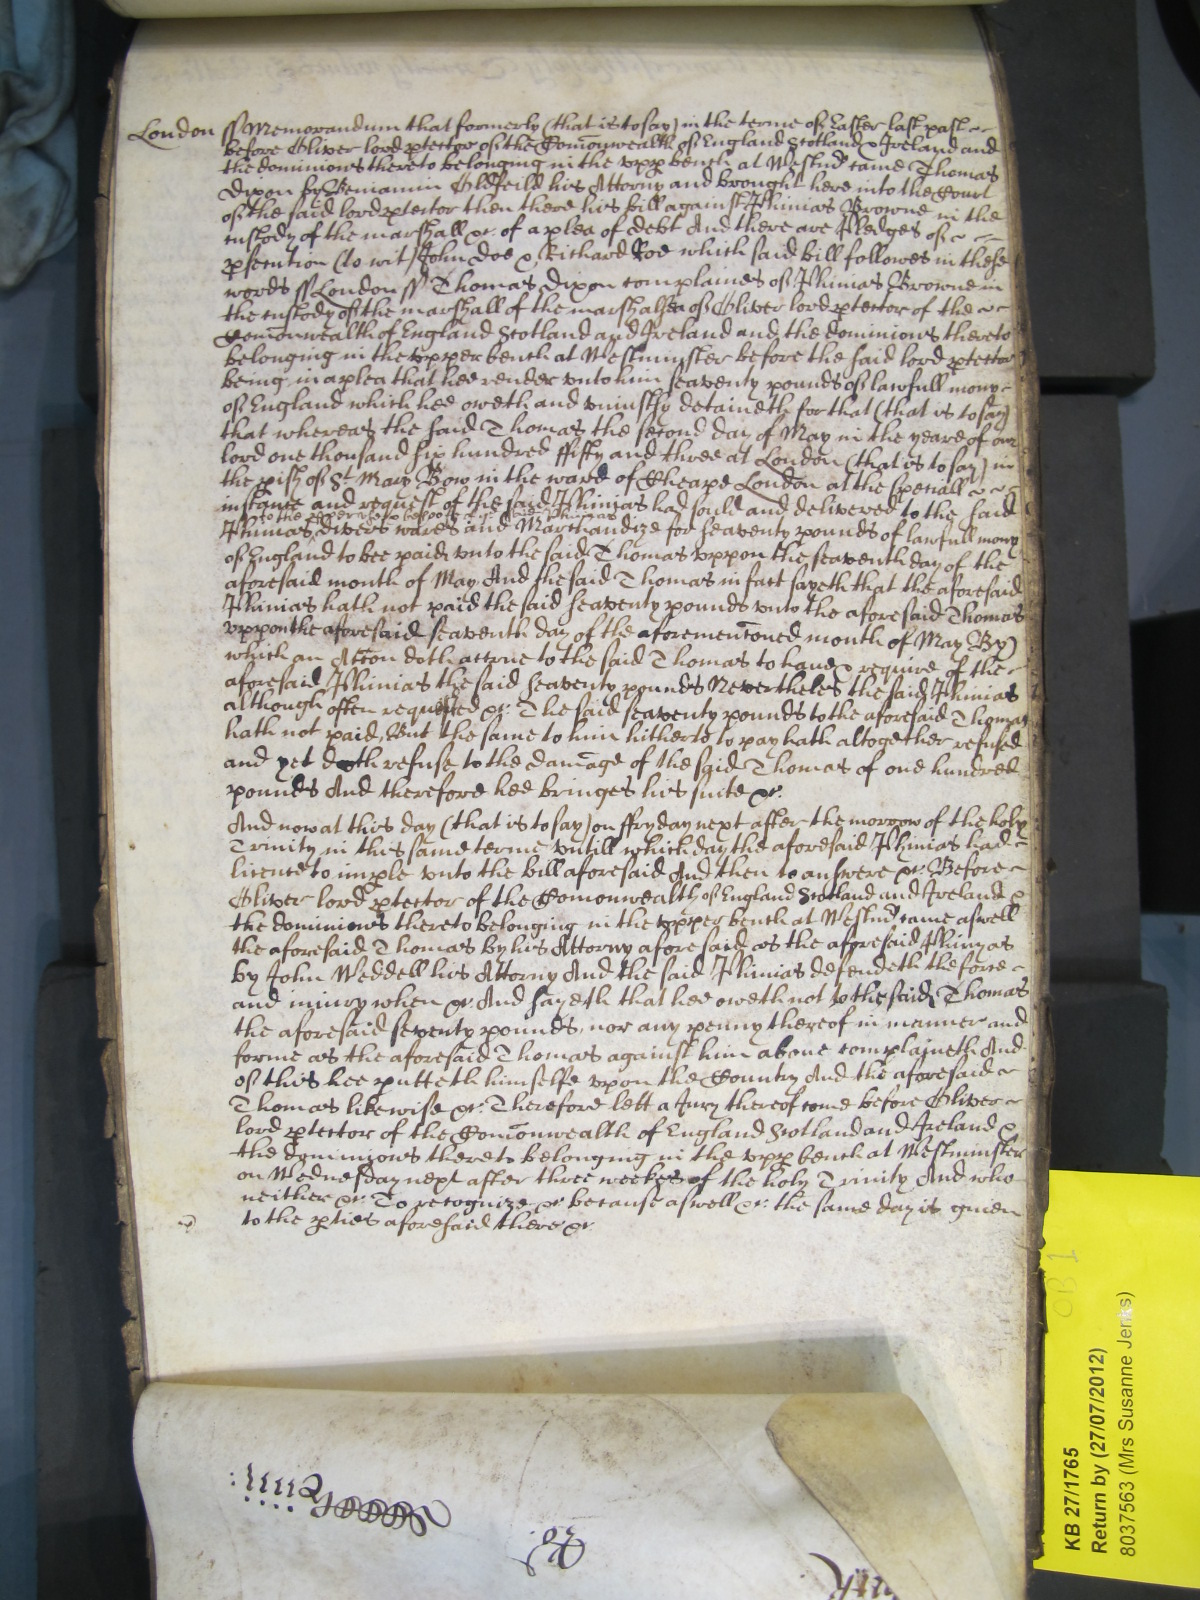 London ss Memorandum that formerly (that is to say) in the terme of Easter last past
before Oliver lord ptector of the Comonwealth of England Scotland & Ireland and
the dominions thereto belonging in the upp bench at Westmr came Thomas
Dixon by Beniamin Oldfeild his Attorny and brought here into the Court
of the said lord ptector then there his bill against Phinias Browne in the
custody of the marshall &c. of a plea of debt And there are Pledges of
psecution (to wit) John Doe & Richard Roe which said bill followes in these
words ss London ss Thomas Dixon complaines of Phinias Browne in
the custody of the marshall of the marshalsea of Oliver lord ptector of the
Comonwealth of England Scotland and Ireland and the dominions thereto
belonging in the vpper bench at Westminster before the said lord ptector
being in a plea that hee render vnto him seaventy pounds of lawfull mony
of England which hee oweth and vniustly detaineth for that (that is to say)
that whereas the said Thomas the second day of May in the yeare of our
lord one thousand six hundred ffifty and three at London (that is to say) in
the pish of St Mary Bow in the ward of Cheape London at the speciall
instance and request of the said Phinias had sould and delivered to the said
Phinias divers wares and Marchandize for seaventy pounds of lawfull mony
of England to bee paid vnto the said Thomas vppon the seaventh day of the
aforesaid month of May And the said Thomas in fact sayeth that the aforesaid
Phinias hath not paid the said seaventy pounds vnto the aforesaid Thomas
vppon the aforesaid seaventh day of the aforementoned month of May By
which an Accon doth accrue to the said Thomas to haue & require of the
aforesaid Phinias the said seaventy pounds Nevertheles the said Phinias
although often requested &c. The said seaventy pounds to the aforesaid Thomas
hath not paid, But the same to him hitherto to pay hath altogether refused
and yet doth refuse to the damage of the said Thomas of one hundred
pounds And therefore hee bringes his suite &c.
And now at this day (that is to say) on ffryday next after the morrow of the holy
Trinity in this same terme vntill which day the aforesaid Phinias had
licence to imple vnto the bill aforesaid And then to answere &c. Before
Oliver lord ptector of the Comonwealth of England Scotland and Ireland &
the dominions thereto belonging in the vpper bench at Westmr came aswell
the aforesaid Thomas by his Attorny aforesaid as the aforesaid Phinyas
by John Weddell his Attorny And the said Phinias defendeth the force
and iniury when &c. And sayeth that hee oweth not to the said Thomas
the aforesaid seventy pounds, nor any penny thereof in manner and
forme as the aforesaid Thomas against him aboue complaineth And
of this hee putteth himselfe vpon the Country And the aforesaid
Thomas likewise &c. Therefore lett a Jury thereof come before Oliver
lord ptector of the Comonwealth of England Scotland and Ireland &
the dominions thereto belonging in the vpp bench at Westminster
on Wednesday next after three weekes of the holy Trinity And who
neither &c. To recognize &c because aswell &c. the same day is giuen
to the pties aforesaid there &c.
KB 27/1765
Return by (27/07/2012)
8037563 (Mrs Susanne Jenks)
OB 1